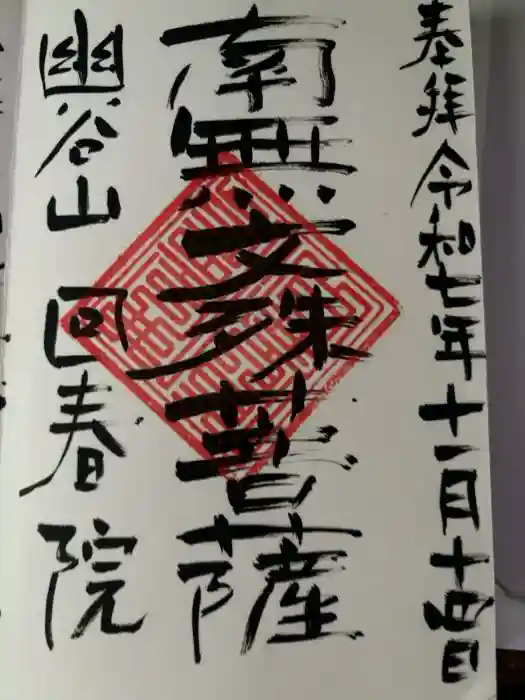 奉拝 令和七年十一月十四日
南無文殊菩薩
幽谷山 回春院